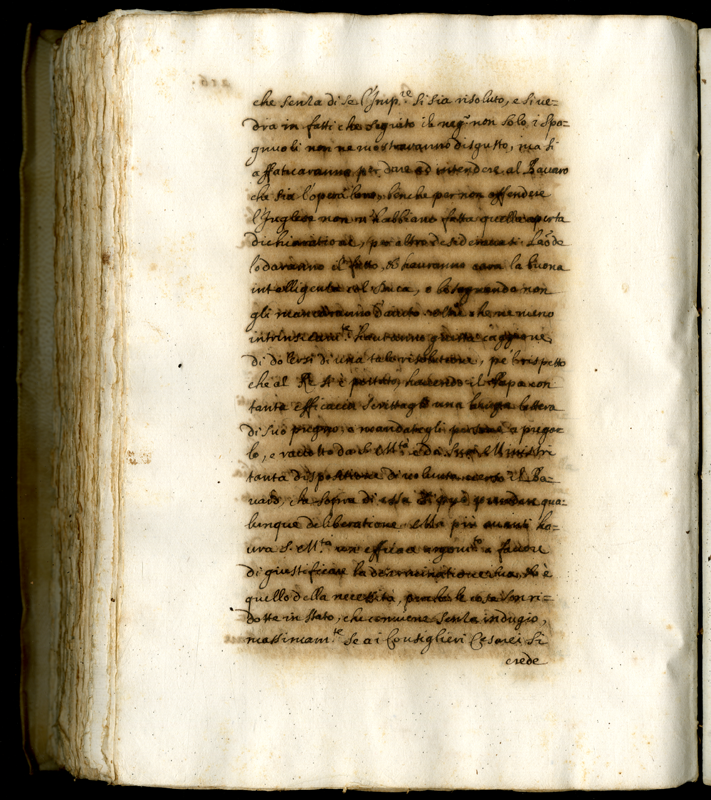 che senza di se l'Imp.re si sia risoluto, e si ve=
drà in fatti che seguito il neg.o non solo i Spa=
gnuoli non ne mostraranno disgusto, ma si
affaticaranno per dare ad intendere al Bavaro
che sia l'opera loro, benche per non offendere
l'Inglese non n'habbiano fatta quella aperta
dichiaratione, per altro desiderata
lodaranno il fatto, hauranno cara la buona
intelligenza col Duca, e bisognando non
gli mancaranno d'aiuto oltre che ne meno
intrinsecam.te hauranno giusta cagione
di dolersi di una tale risolutione, pe'l rispetto
che al Re si è portato, havendo il Papa con
tanta efficacia scrittagli una lunga lettera
di suo pugno, e mandategli persone a pregar
lo, e raccolto da S. M.tà e da suoi Ministri
tanta dispositione di volontà verso il Ba=
varo, che sopra di essa si può prendere qua=
lunque deliberatione. Ma più avanti ha=
vrà S. M.tà un efficace argom.to a favore
di giustificare la determinatione sua, ch'è
quello della necessità, perche le cose son ri=
dotte in stato, che conviene senza indugio,
massimam.te se a i Consiglieri Cesarei si
crede